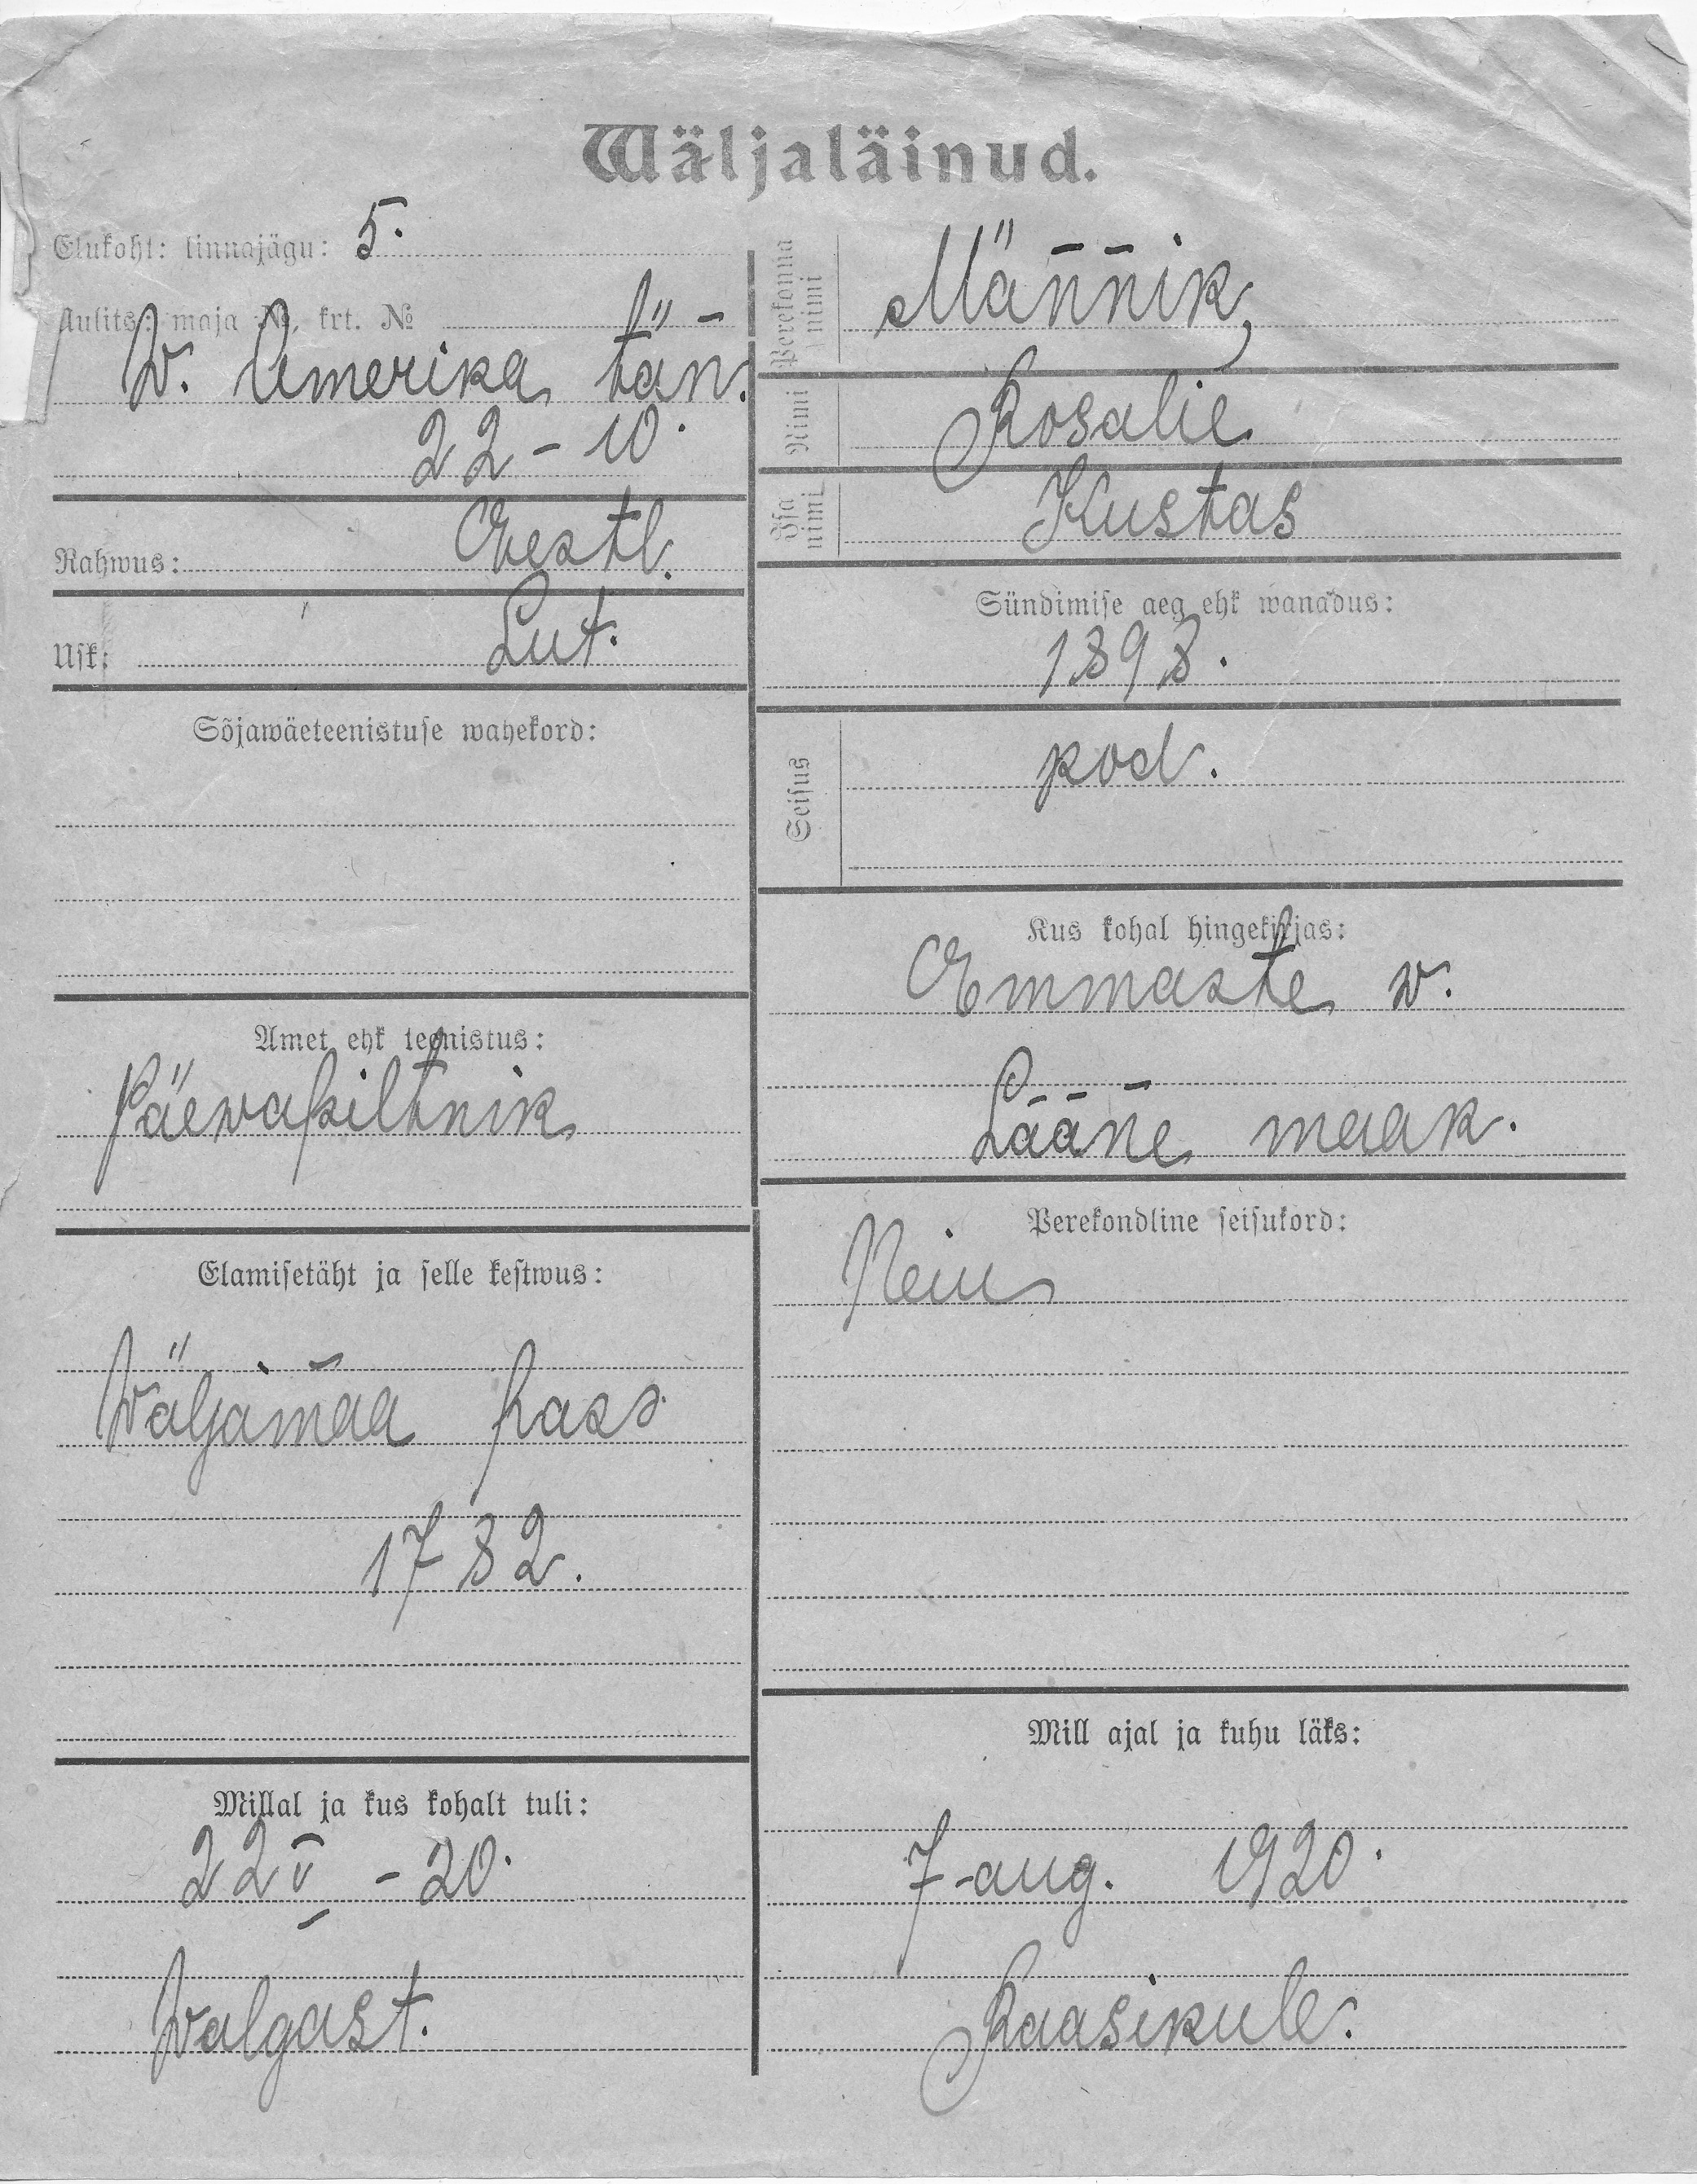 Wäljaläinud.
Elukoht: linnajägu: 5.
Uulits: maja №, krt. №
W. Amerika tän.
22 - 10.
Rahwus: Eestl.
Usk: Lut.
Sõjawäeteenistuse wahekord:
Amet ehk teenistus:
Päewapiltnik
Elamisetäht ja selle kestwus:
Wäljamaa pass
1782.
Millal ja kus kohalt tuli:
22 V - 20.
Walgast.
Perekonna nimi
Männik,
Nimi
Rosalie
Isa nimi
Kustas
Sündimise aeg ehk wanadus:
1898.
Seisus
kod.
Kus kohal hingekirjas:
Emmaste w.
Lääne maak.
Perekondline seisukord:
Neiu
Mill ajal ja kuhu läks:
7-aug. 1920.
Raasikule.